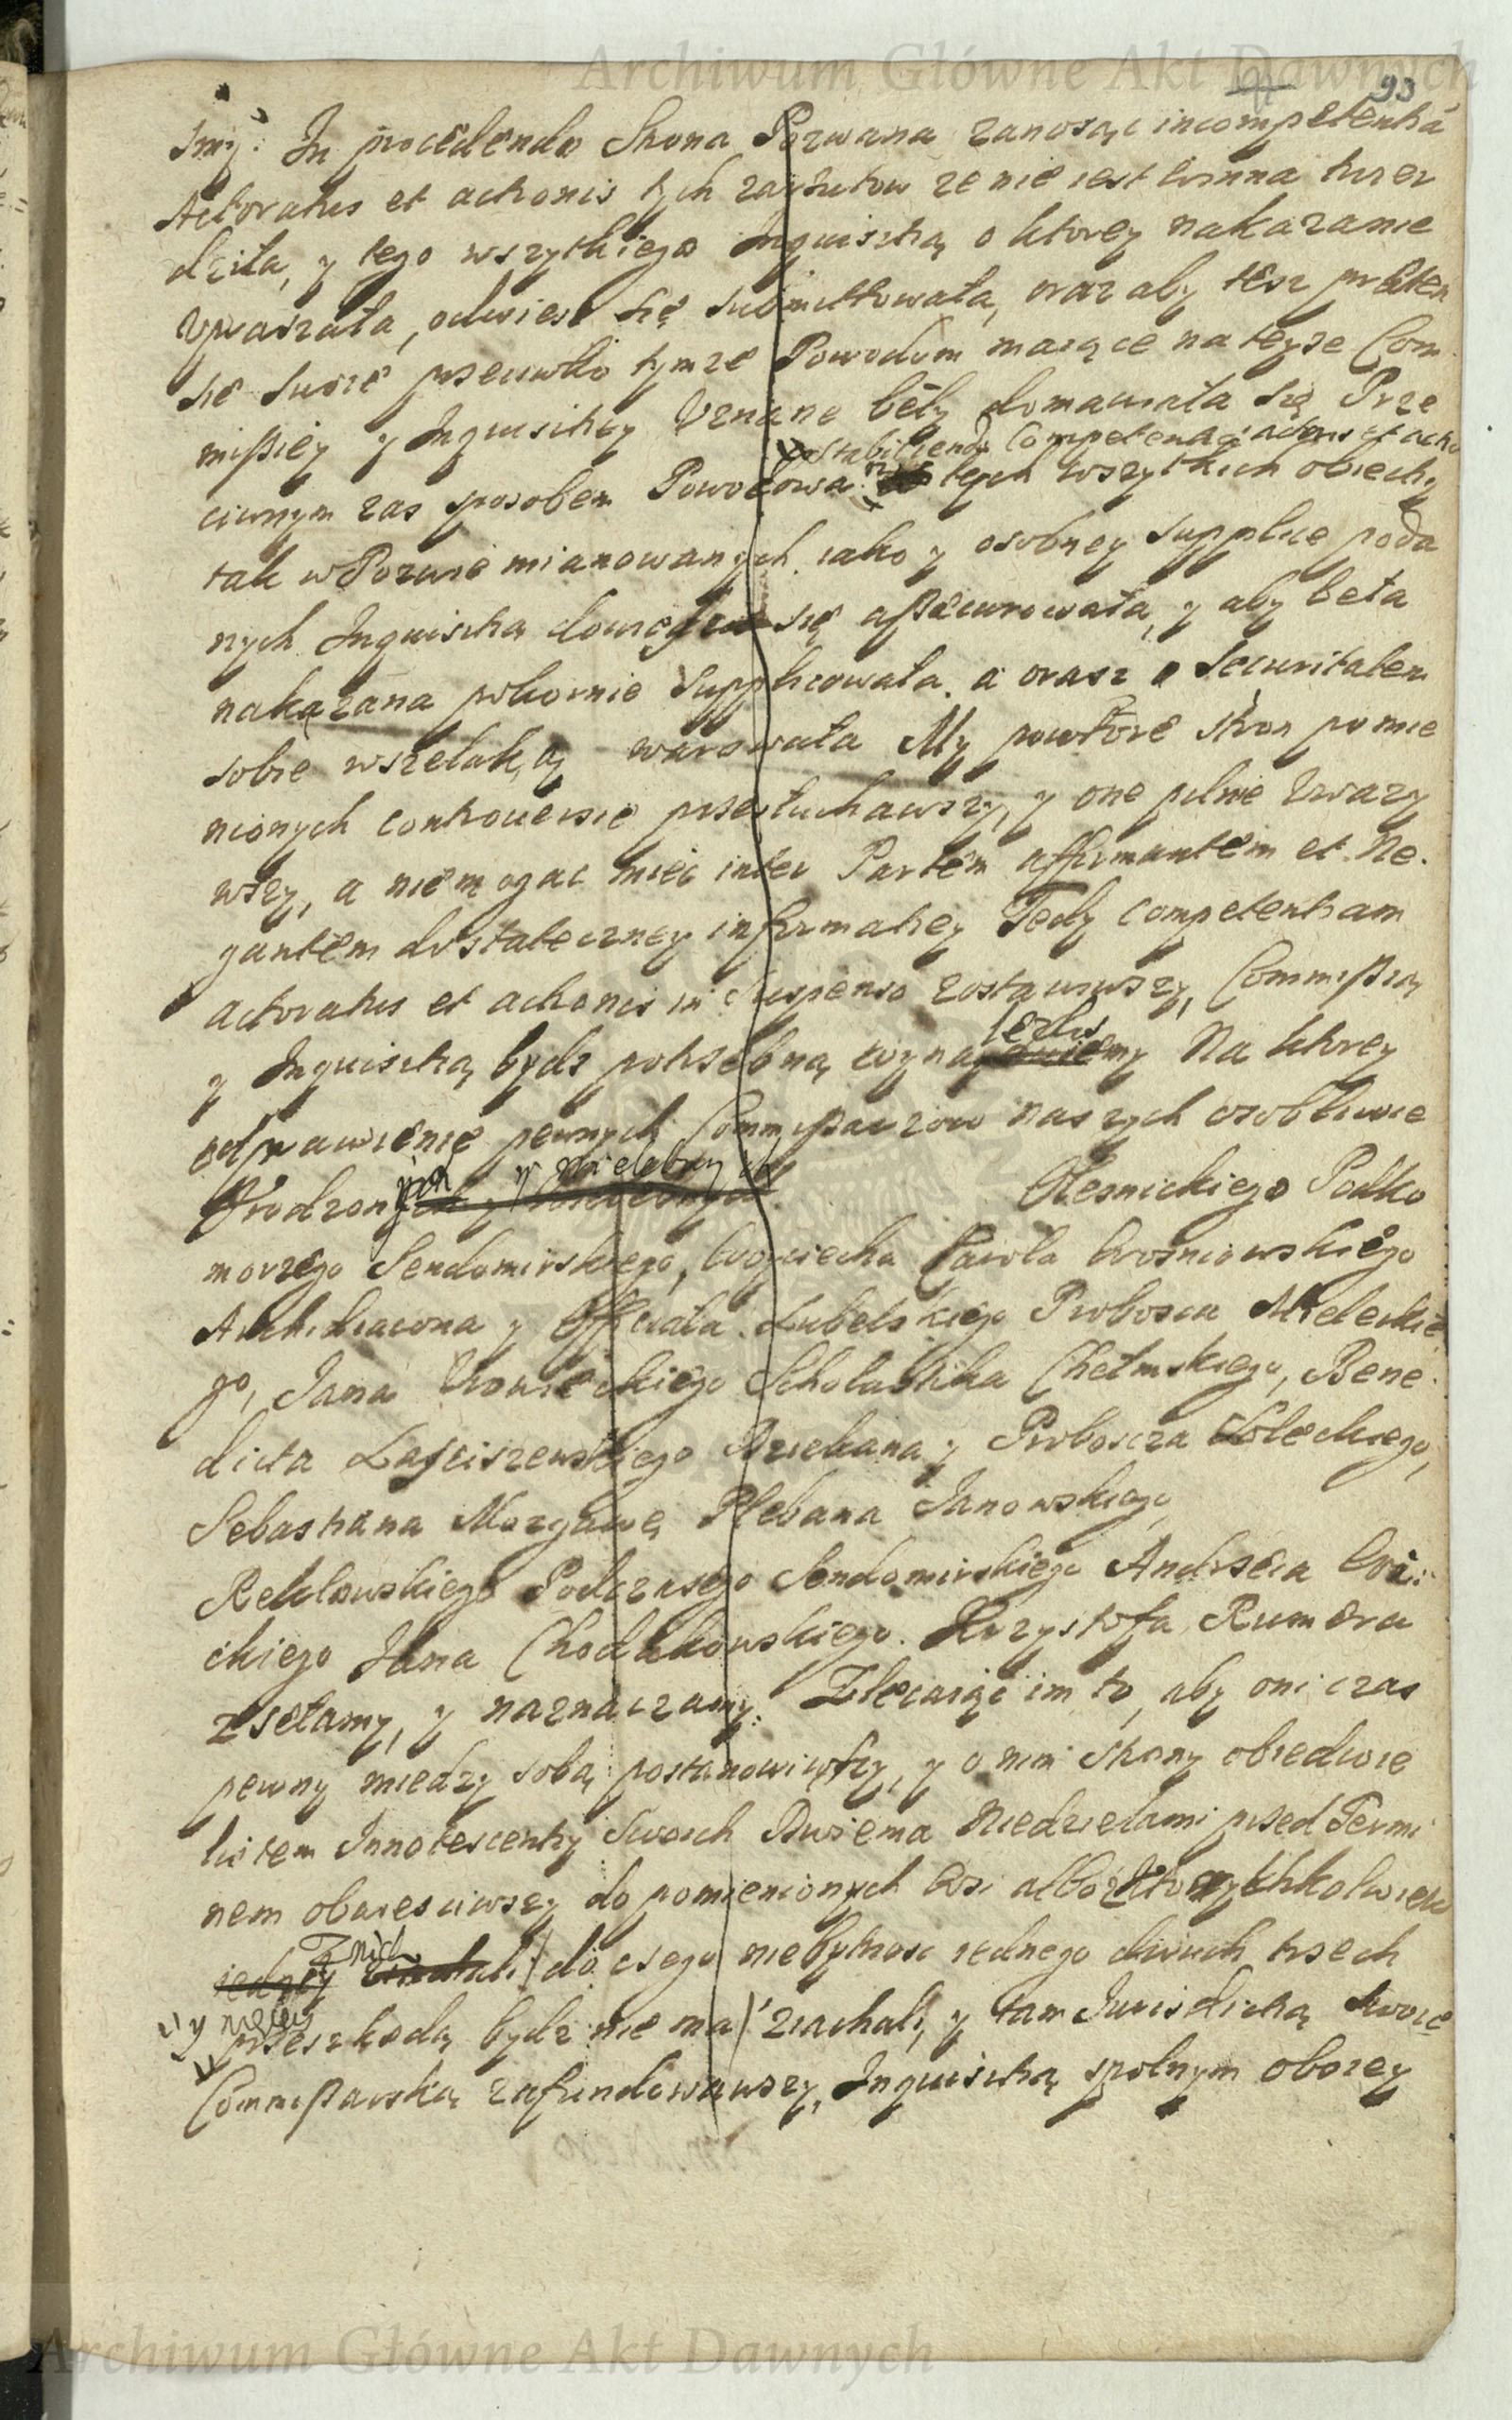 Archiwum Główne Akt Dawnych
93
Imię: In procedendo Strona Pozwana zanosząc incompetentiá
Actoratus et actionis tych zarzutow ze nie iest winna twier
dziła, y tego wszytkiego Inquisitią o ktorey nakazanie
Vpraszała, odwiesc się submittowała, oraz aby tesz preten
sie swoie przeciwko tymze Powodom maiące na teyze Com
missiey y Inquisitiey Vznane beły domawiała się Prze
stabiliendo Competentią actoris et actio
ciwnym zas sposobem Powodowa tych wszytkich obiectiy
tak w Pozwie mianowanych iako y osobney supplice poda
nych Inquisitią dowiesc się assecurowała, y aby beła
nakazana pokornie supplicowała. a orasz o securitatem
sobie wszelaką warowała My powtore stron pomie
nionych controuersie przesłuchawszy, y one pilnie Vwazy
wszy, a niemogac miec inter Partem affirmantem et Ne.
gantem dostateczney informatiey Tedy competentiam
actoratus et actionis in suspenso zostawiwszy, Commissią
y Inquisitią bydz potrzebną wynay my Na ktorey
odprawienie pewnych Commissarzow naszych osobliwie
Vrodzon y wielebnych Olesnickiego Podko
morzego Sendomirskiego, Woyciecha Karola Krosniowskiego
Archidiacona y Officiała Lubelskiego Probosza Mieleckie
go, Jana Scholastika Chełmskiego, Bene
dicta Lasciszewskiego Dziekana y Proboscza Soleckiego,
Sebastiana Morgawe Plebana Janowskiego,
Reklowskiego Podczaszego Sendomirskiego Andrzeia
ckiego Jana Chodakowskiego. Krzysztofa Rumera
zsełamy, y naznaczamy. Zlecaiąc im to, aby oni czas
pewny miedzy sobą postanowiwszy, y o nim strony obiedwie
listem Innotescentiy swoich Dwiema Niedzielami przed Termi
nem obwiesciwszy do pomienionych Wsi albo ktorychkolwiek
z nich do czego niebytnosc iednego dwuch trzech
y wiecey
przeszkodą bydz nie ma ziachali, y tam Jurisdictią swoię
Commissarską zafundowawszy, Inquisitią spolnym oboiey
Archiwum Główne Akt Dawnych